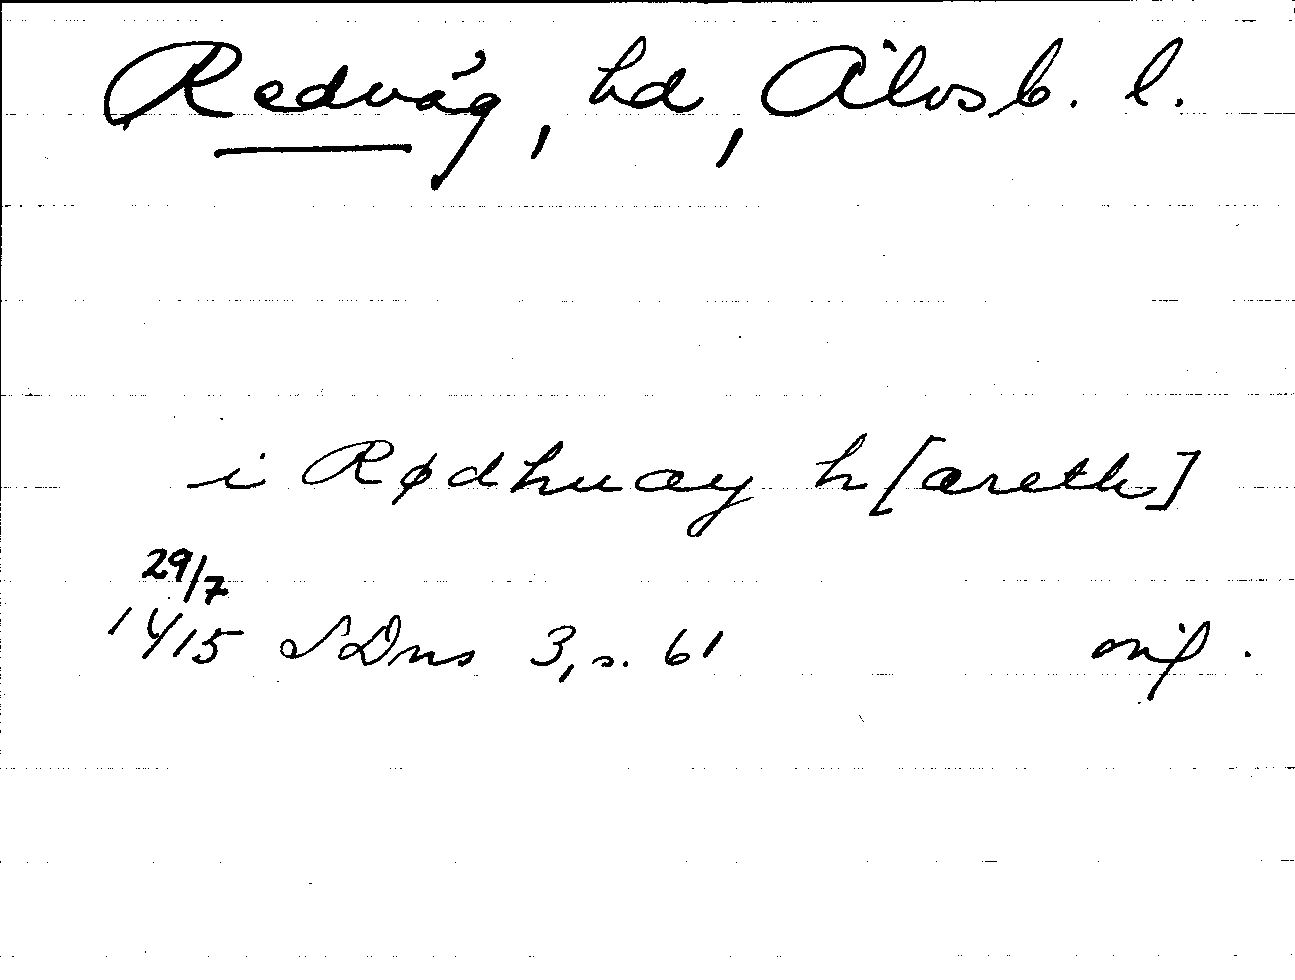 Redväg, hd, Älvsb. l.
i Rødhuay h[æreth]
29/7
1415 SDns 3, s. 61 orig.